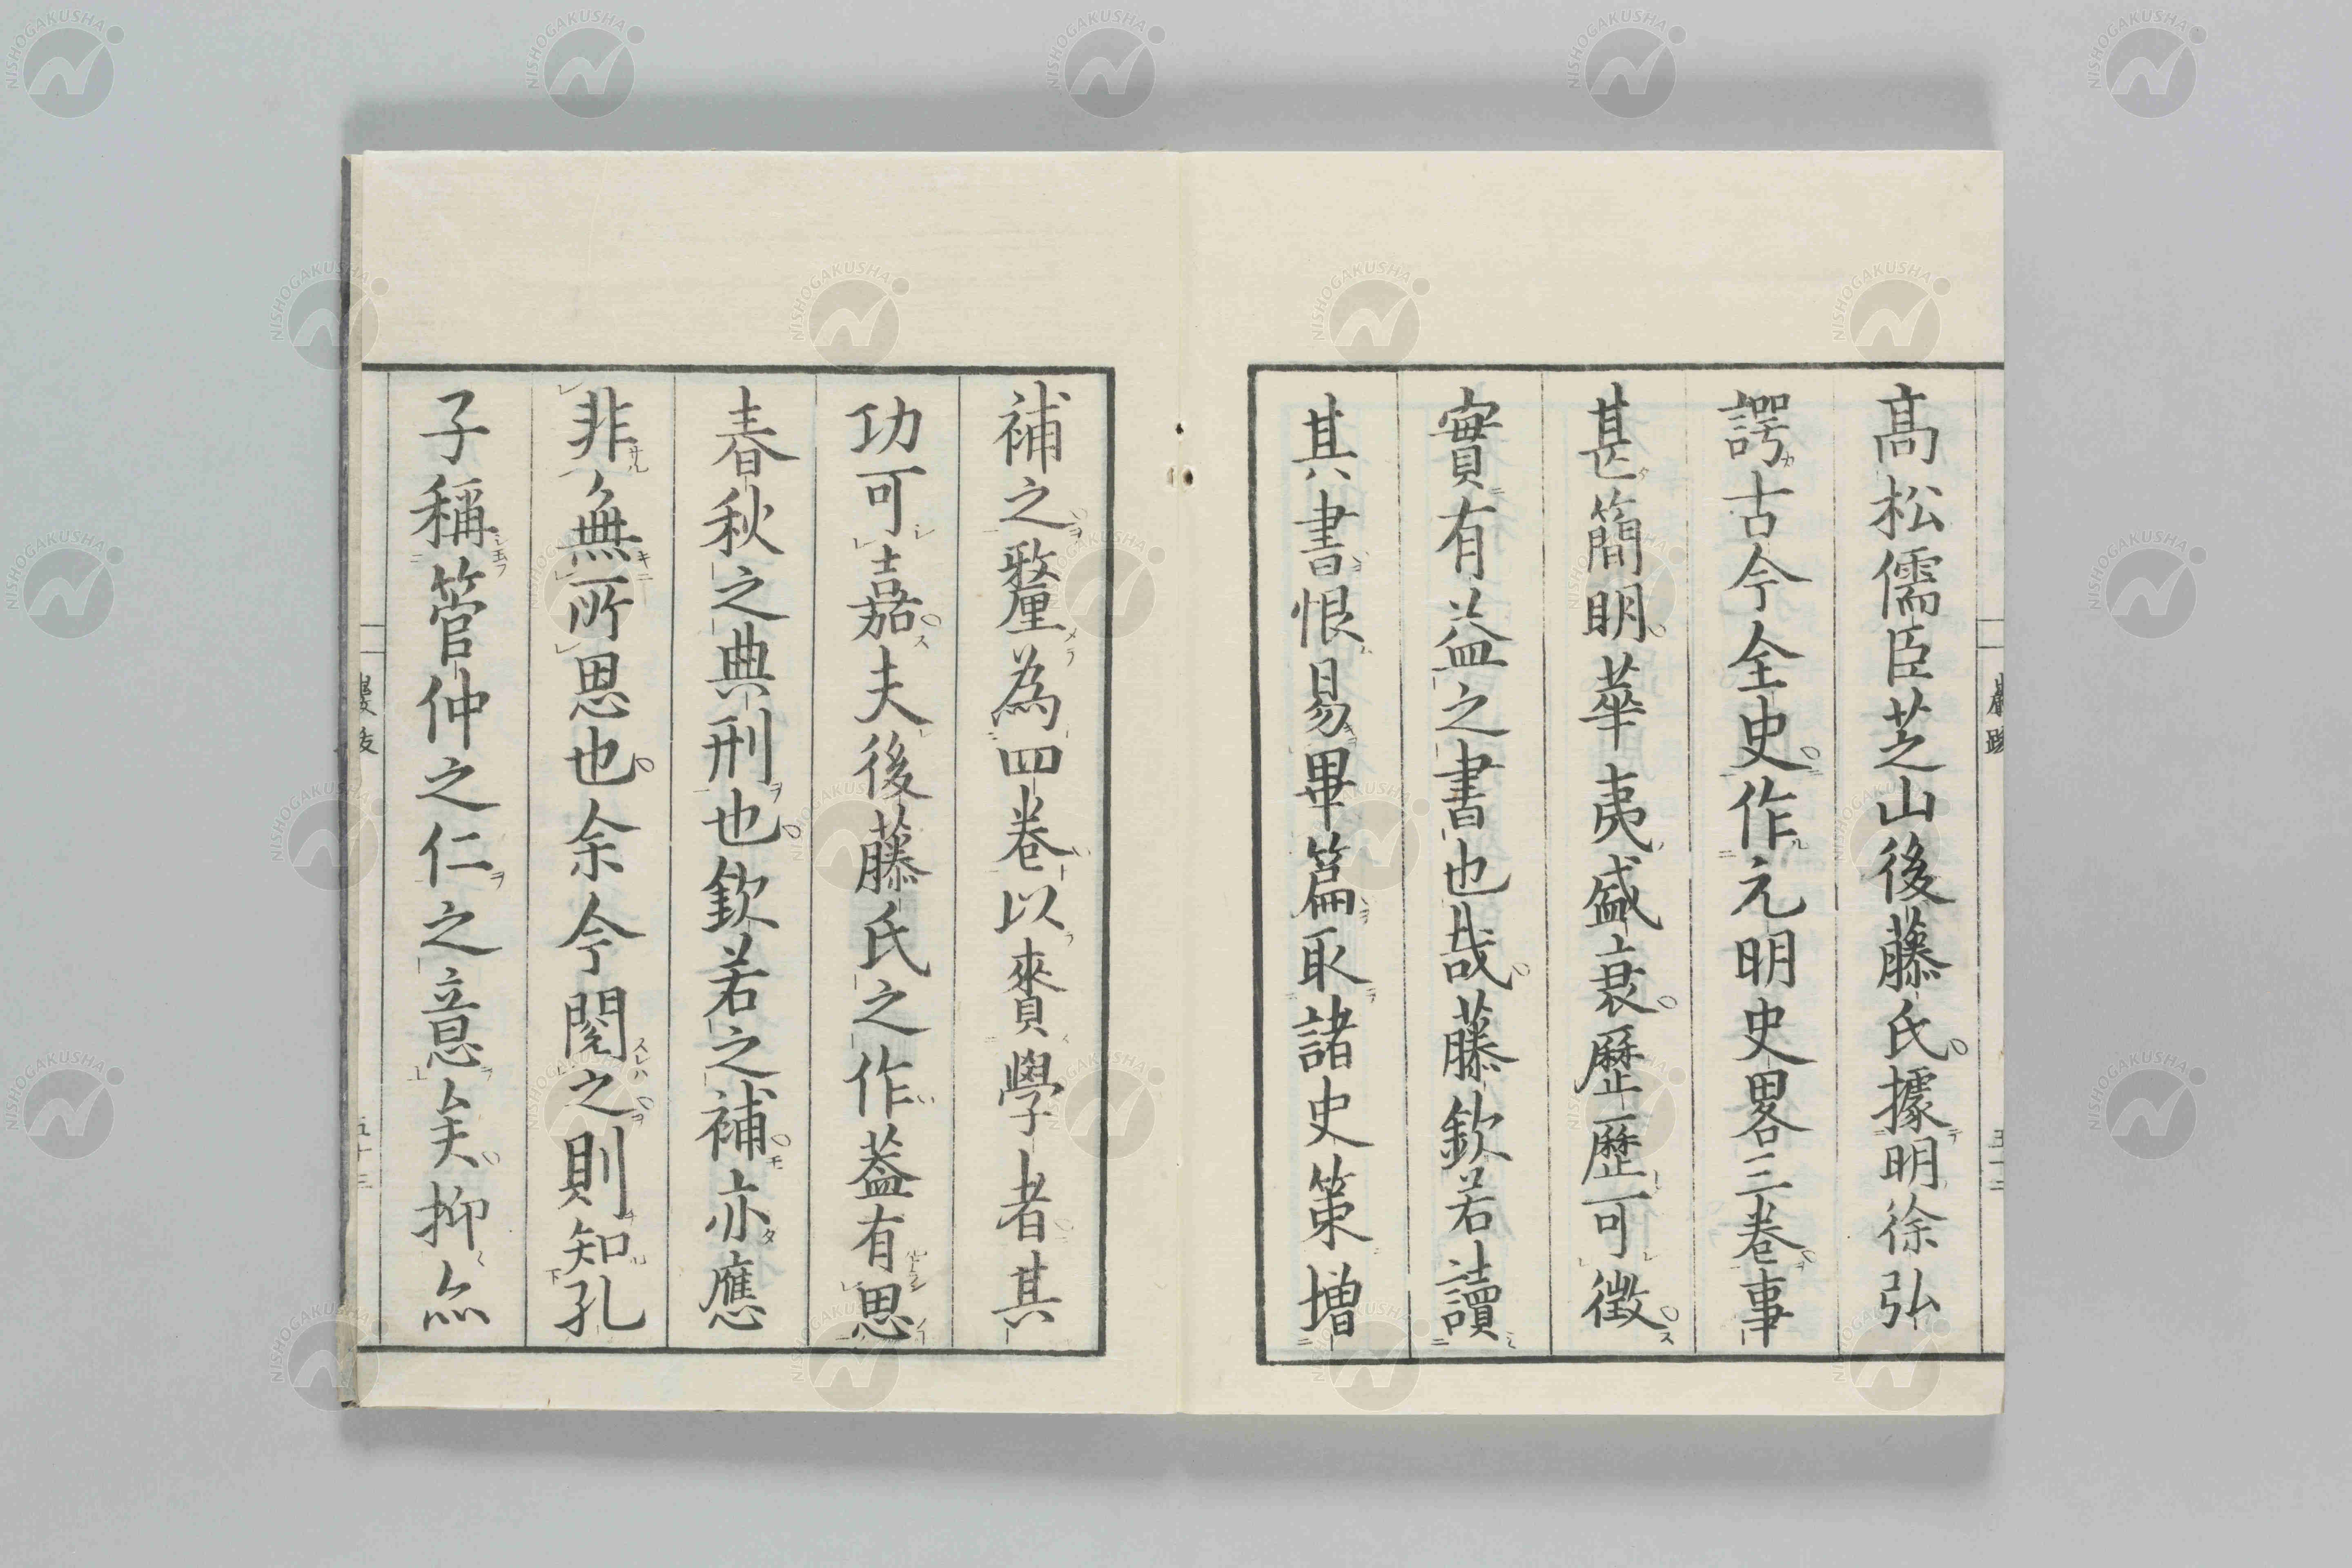 髙松儒臣芝山後藤氏據明徐弘
諤古今全史作元明史畧三卷事
甚簡明華夷盛衰歷歷可徴
實有益之書也哉藤欽若讀
其書恨易畢篇取諸史策增
補之釐為四卷以賚學者其
功可嘉夫後藤氏之作蓋有思
春秋之典刑也欽若之補亦應
非無所思也余今閲之則知孔
子稱管仲之仁之意矣抑亦
NISHOGAKUSHA